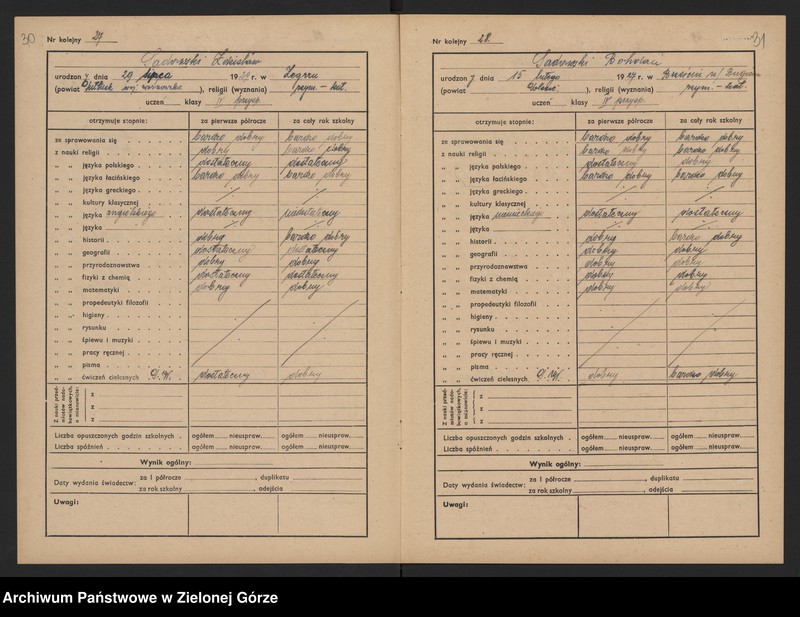 30
Nr kolejny 27
urodzony dnia 29 lipca 19 r. w Zegrzu
(powiat woj. ), religii (wyznania) rzym. – kat.
uczeń klasy IV
otrzymuje stopnie: za pierwsze półrocze za cały rok szkolny
ze sprawowania się bardzo dobry bardzo dobry
z nauki religii dobry bardzo dobry
„ „ języka polskiego dostateczny dostateczny
„ „ języka łacińskiego bardzo dobry bardzo dobry
„ „ języka greckiego
„ „ kultury klasycznej
„ „ języka angielskiego dostateczny
„ „ języka
„ „ historii dobry bardzo dobry
„ „ geografii dostateczny dostateczny
„ „ przyrodoznawstwa dobry dobry
„ „ fizyki z chemią dostateczny dostateczny
„ „ matematyki dobry dobry
„ „ propedeutyki filozofii
„ „ higieny
„ „ rysunku
„ „ śpiewu i muzyki
„ „ pracy ręcznej
„ „ pisma
„ „ ćwiczeń cielesnych dostateczny dobry
Z nauki przedmiotów nadobowiązkowych, a mianowicie:
z
z
z
Liczba opuszczonych godzin szkolnych ogółem nieuspraw. ogółem nieuspraw.
Liczba spóźnień ogółem nieuspraw. ogółem nieuspraw.
Wynik ogólny:
Daty wydania świadectw: za I półrocze , duplikatu
za rok szkolny , odejścia
Uwagi:
31
Nr kolejny 28.
urodzony dnia 15 lutego 19 r. w Brześciu n/Bugiem
(powiat ), religii (wyznania) rzym. – kat.
uczeń klasy IV
otrzymuje stopnie: za pierwsze półrocze za cały rok szkolny
ze sprawowania się bardzo dobry bardzo dobry
z nauki religii bardzo dobry bardzo dobry
„ „ języka polskiego dostateczny dobry
„ „ języka łacińskiego bardzo dobry bardzo dobry
„ „ języka greckiego
„ „ kultury klasycznej
„ „ języka niemieckiego dostateczny dostateczny
„ „ języka
„ „ historii dobry bardzo dobry
„ „ geografii dobry dobry
„ „ przyrodoznawstwa dobry dobry
„ „ fizyki z chemią dobry dobry
„ „ matematyki dobry dobry
„ „ propedeutyki filozofii
„ „ higieny
„ „ rysunku
„ „ śpiewu i muzyki
„ „ pracy ręcznej
„ „ pisma
„ „ ćwiczeń cielesnych dobry bardzo dobry
Z nauki przedmiotów nadobowiązkowych, a mianowicie:
z
z
z
Liczba opuszczonych godzin szkolnych ogółem nieuspraw. ogółem nieuspraw.
Liczba spóźnień ogółem nieuspraw. ogółem nieuspraw.
Wynik ogólny:
Daty wydania świadectw: za I półrocze , duplikatu
za rok szkolny , odejścia
Uwagi:
Archiwum Państwowe w Zielonej Górze